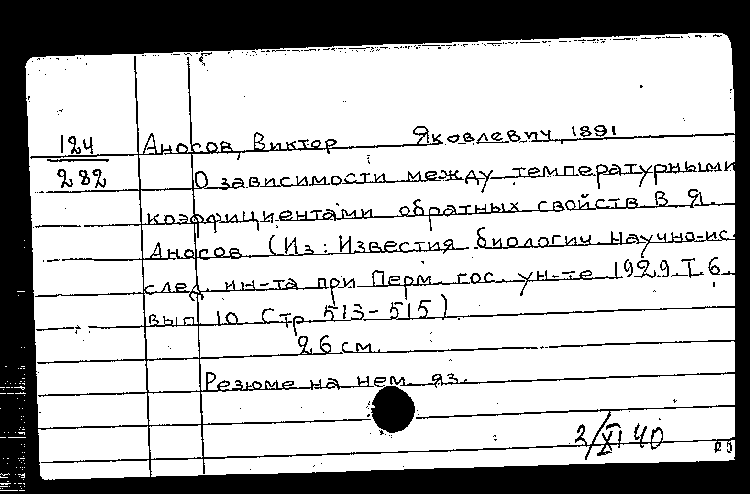 124 Аносов, Виктор Яковлевич, 1891
282 О зависимости между температурными
коэффициентами обратных свойств В. Я.
Аносов. (Из: Известия биологич. научно-ис-
след. ин-та при Перм. гос. ун-те 1929. Т. 6.
вып 10 Стр. 513-515)
26 см.
Резюме на нем. яз.
2/XI 40